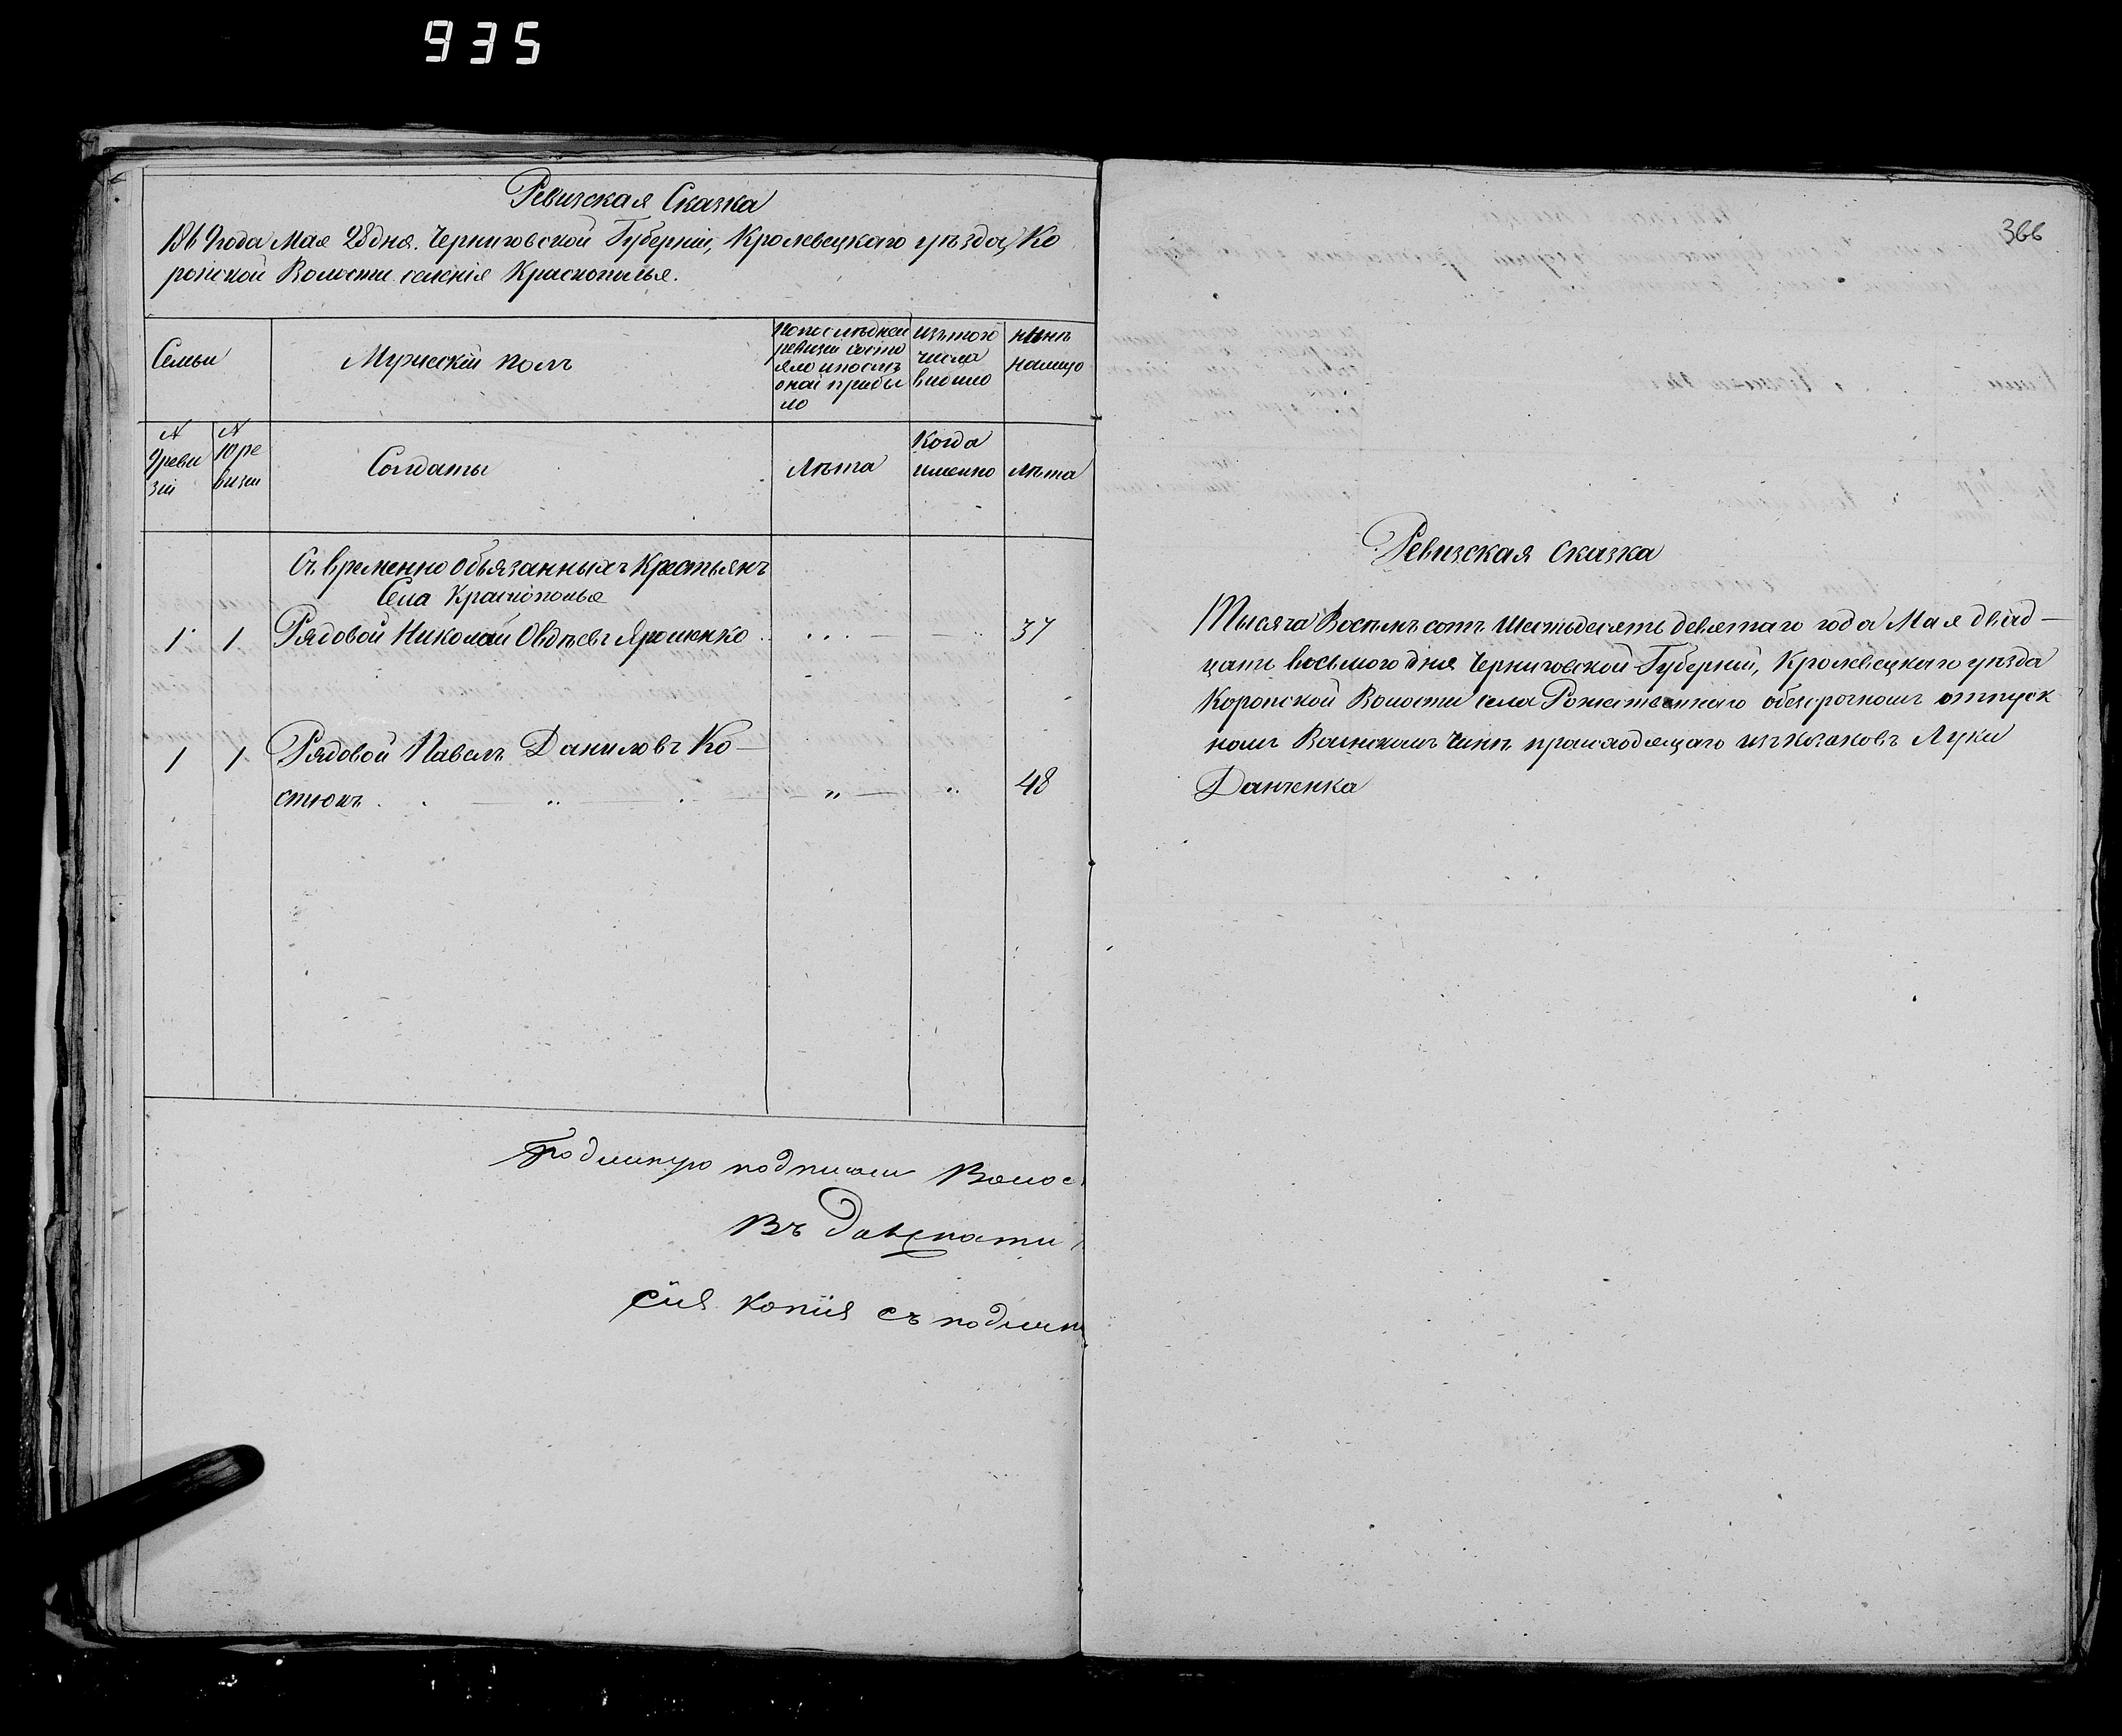 935
Ревизская Сказка
1869 года Мая 28 дня. Черниговской Губерніи, Кролевецкаго уѣзда, Ко
ропской Волости селенія Краснополья.
Семьи
Мужескій полъ
По последней
ревизіи состо
яло и послѣ
оной прибы
ло
Изъ того
числа
выбыло
Нынѣ
налицо
№
9 реви
зіи
№
10 ре
визіи
Солдаты
Лѣта
Когда
именно
Лѣта
Съ временно обьязанныхъ Крестьянъ
Села Краснополья
1 1 Рядовой Николай Овдѣевъ Ярошенко 37
1 1 Рядовой Павелъ Даниловъ Ко-
стюкъ 48
Подлинную подписали Волос
Въ
сія копія съ подлин
366
Ревизская сказка
Тысяча Восемьсотъ шестьдесятъ девятаго года Мая двад-
цать восьмого дня Черниговской Губерніи, Кролевецкаго уѣзда
Коропской Волости села Рожественнаго обезсрочномъ отпуск
номъ Воинскомъ чинѣ происходящаго изъ козаковъ Луки
Данченка